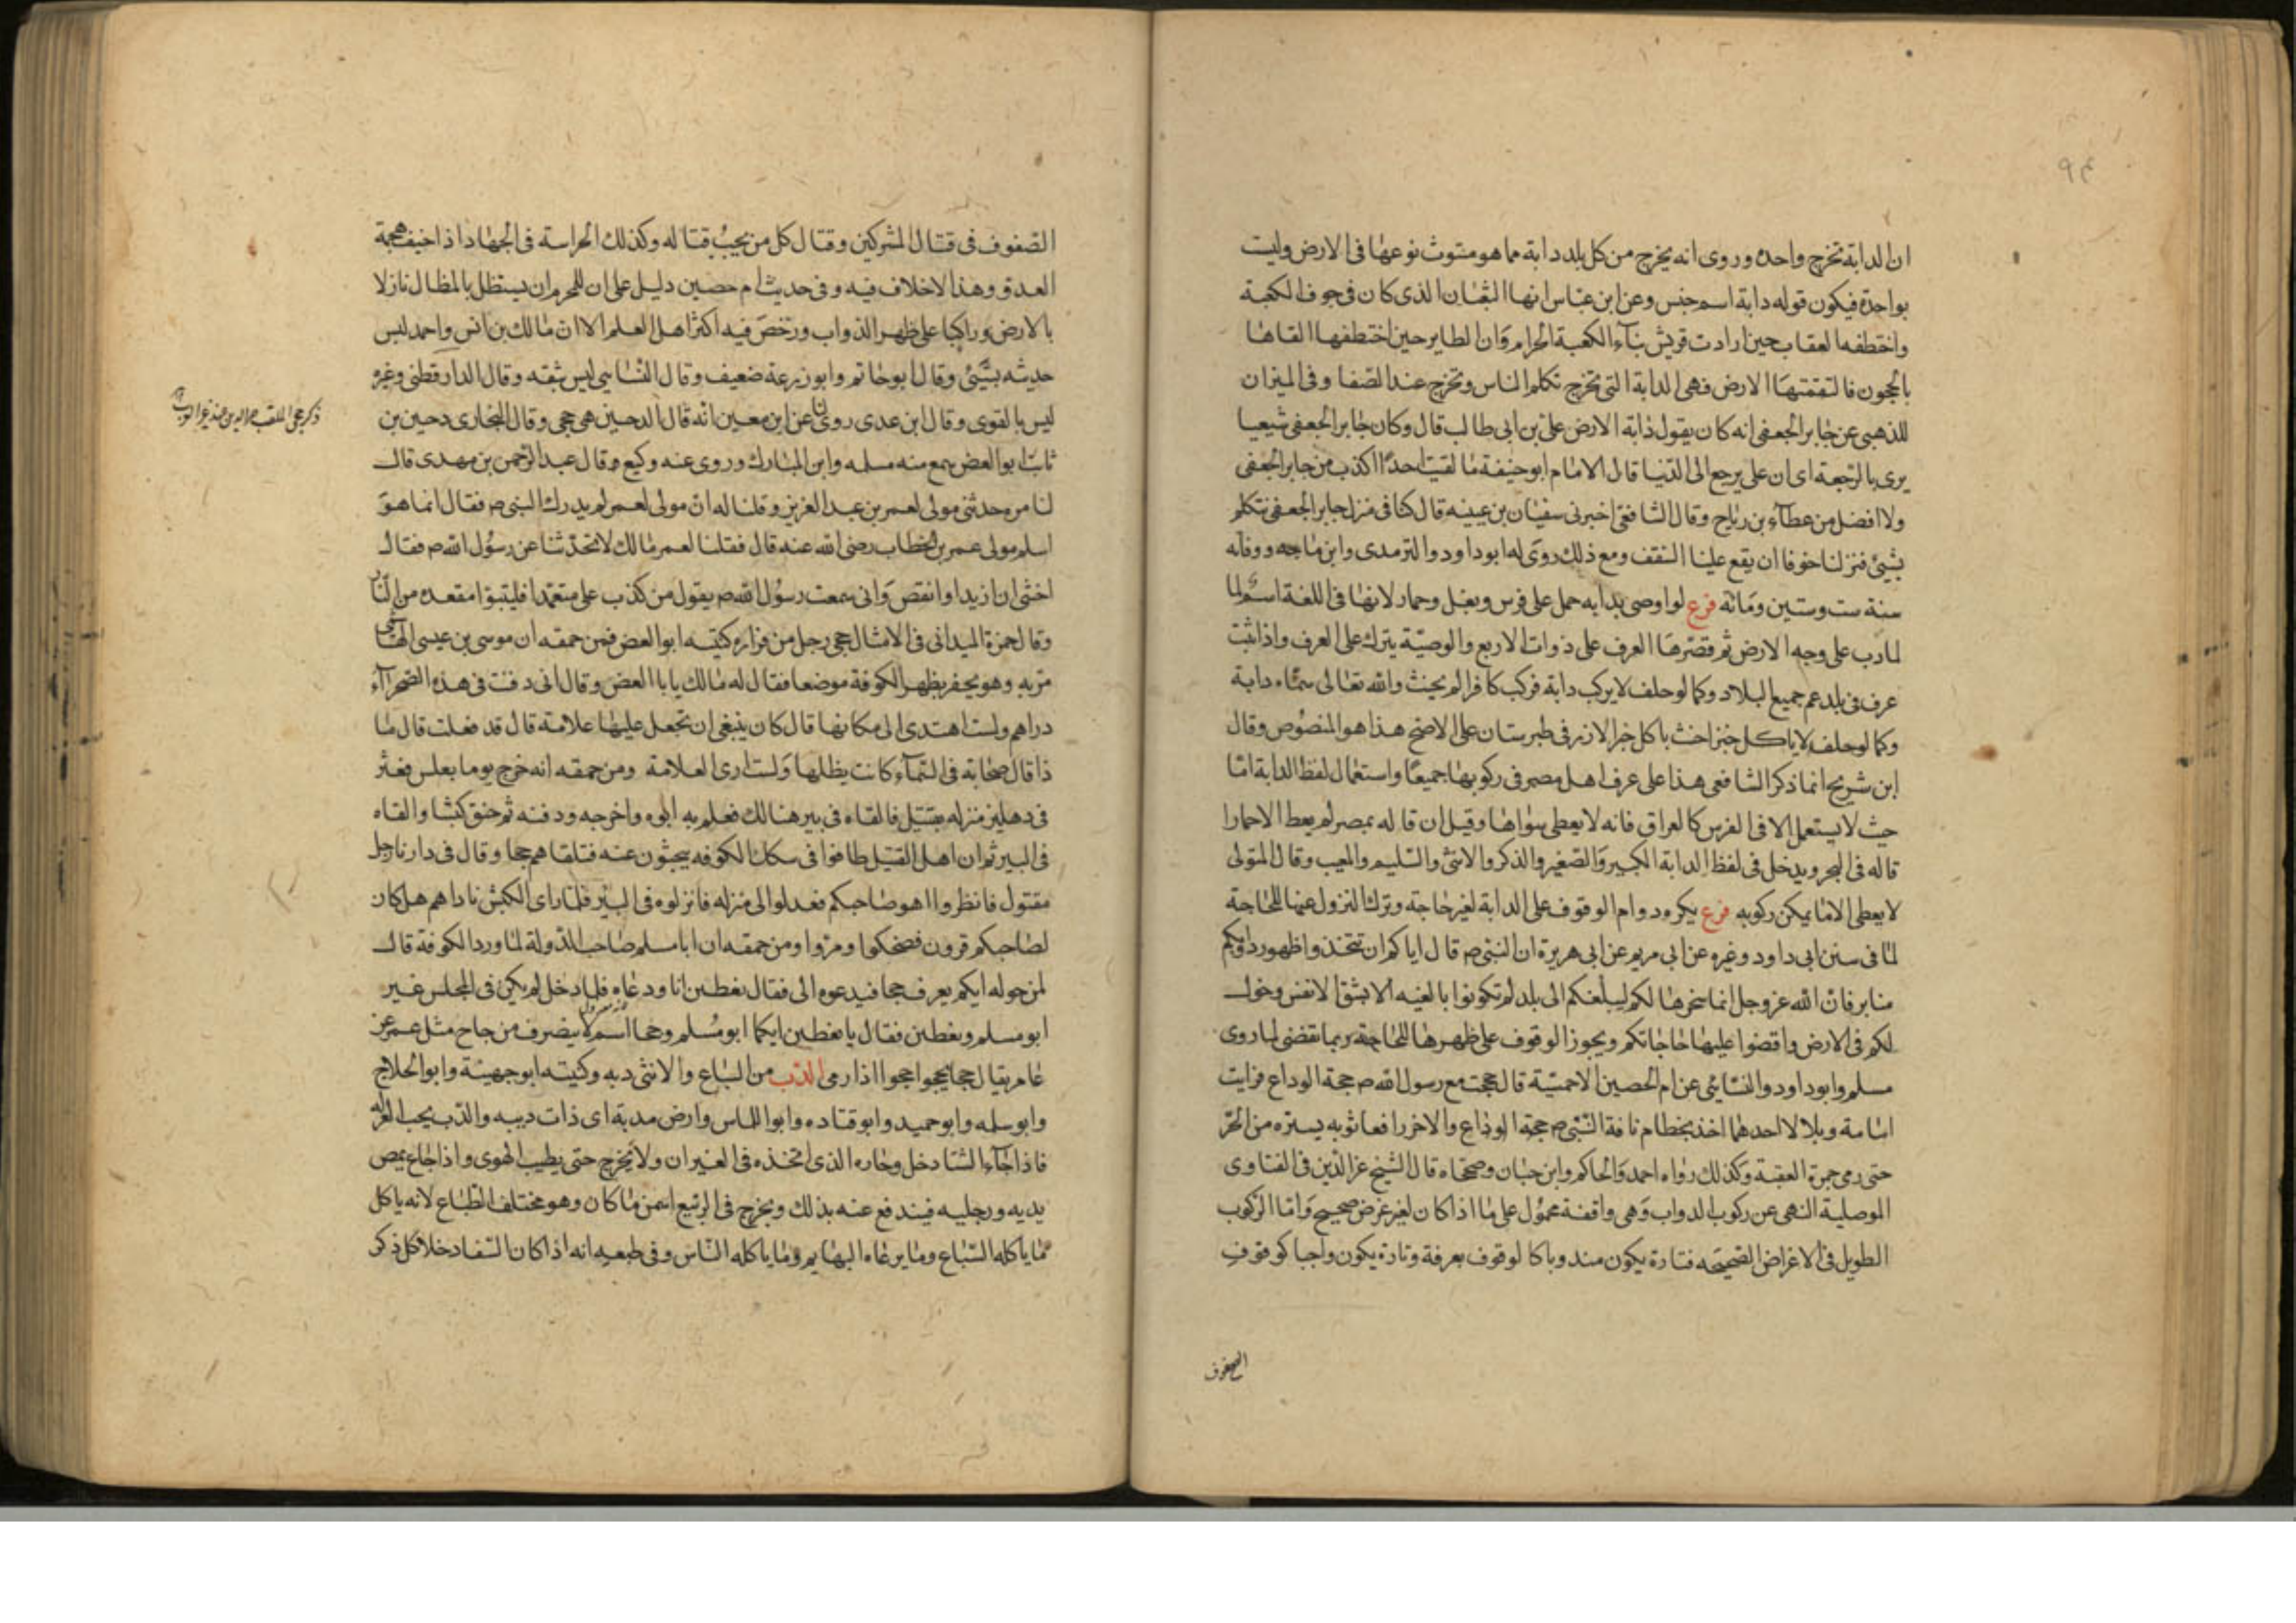 ان الدابة تخرج واحده وروى انه يخرج من كل بلد دابة مما هو مبثوث نوعها فى الارض وليت
بواحدة فيكون قوله دابة اسم جنس وعن ابن عباس انها الثعبان الذى كان فى جوف الكعبة
واختطفه العقاب حين ارادت قريش بناء الكعبة الحرام وان الطاير حين اختطفها القاها
بالحجون فالتقمتها الارض فهى الدابة التى تخرج تكلم الناس وتخرج عند الصفا وفى الميزان
للذهبى عن جابر الجعفى انه كان يقول دابة الارض على بن ابى طالب قال وكان جابر الجعفى شيعيا
يرى بالرجعة اى ان على يرجع الى الدنيا قال الامام ابو حنيفة ما لقيت احدا اكذب من جابر الجعفى
ولا افضل من عطاء بن رباح وقال الشافعى اخبرنى سفيان بن عيينه قال كنا فى منزل جابر الجعفى نتكلم
بشئ فنزلنا خوفا ان يقع علينا السقف ومع ذلك روى له ابو داود والترمدى وابن ماجه ووفاته
سنة ست وستين ومائه فرع لو اوصى بدابه حمل على فرس وبغل وحمار لانها فى اللغة اسم لما
لمادب على وجه الارض ثم قصرها العرف على ذوات الاربع والوصية يترك على العرف واذا ثبت
عرف فى بلد عم جميع البلاد وكما لو حلف لا يركب دابة فركب كافرا لم يحنث والله تعالى سماه دابة
وكما لو حلف لا ياكل خبزا حنث باكل خبز الارز فى طبرستان على الاصح هذا هو المنصوص وقال
ابن شريح انما ذكر الشافعى هذا على عرف اهل مصر فى ركوبها جميعا واستعمال لفظ الدابة اما
حيث لا يستعمل الا فى الفرس كالعراق فانه لا يعطى سواها وقيل ان قاله بمصر لم يعط الا حمارا
قاله فى البحر ويدخل فى لفظ الدابة الكبير والصغير والذكر والانثى والسليم والمعيب وقال المتولى
لا يعطى الا ما يمكن ركوبه فرع يكره دوام الوقوف على الدابة لغير حاجة وترك النزول عنها للحاجة
لما فى سنن ابى داود وغيره عن ابى مريم عن ابى هريرة ان النبى ص قال اياكم ان تتخذوا ظهور دوابكم
منابر فان الله عز وجل انما سخرها لكم ليبلغكم الى بلد لم تكونوا بالغيه الا بشق الانفس وجعل
لكم فى الارض واقضوا عليها حاجاتكم ويجوز الوقوف على ظهرها للحاجة ريما تقضى لما روى
مسلم وابو داود والنسايى عن ام الحصين الاحمسية قال حججت مع رسول الله ص حجة الوداع فرايت
اسامة وبلالا احدهما اخذ بخطام ناقة النبى ص حجة الوداع والاخر رافعا ثوبه يستره من الحر
حتى رمى جمرة العقبة وكذلك رواه احمد والحاكم وابن حبان وصححاه قال الشيخ عز الدين فى الفتاوى
الموصلية النهى عن ركوب الدواب وهى واقفة محمول على ما اذا كان لغير غرض صحيح واما الركوب
الطويل فى الاغراض الصحيحه فتارة يكون مندوبا كالوقوف بعرفة وتارة يكون واجبا كوقوف
الصفوف
الصفوف فى قتال المشركين وقتال كل من يجب قتاله وكذلك الحراسة فى الجهاد اذا خيف هجمة
العدو وهذا لاخلاف فيه وفى حديث ام حصين دليل على ان للمحرم ان يستظل بالمظال نازلا
بالارض وراكبا على ظهر الدواب ورخص فيه اكثر اهل العلم الا ان مالك بن انس واحمد ليس
حديثه بشئ وقال ابو حاتم وابو زرعة ضعيف وقال النسايى ليس بثقه وقال الدارقطنى وغره
ليس بالقوى وقال ابن عدى روى لنا عن ابن معين انه قال الدحين هى جحى وقال البخارى دحين بن
ثابت ابو الغصن سمع منه مسلمه وابن المبارك وروى عنه وكيع وقال عبد الرحمن بن مهدى قال
لنا مره حدثنى مولى لعمر بن عبد العزيز وقلنا له ان مولى لعمر لم يدرك النبى ص فقال انما هو
اسلم مولى عمر بن الخطاب رضى الله عنه قال فقلنا لعمر مالك لا تحدثنا عن رسول الله ص فقال
اخشى ان ازيد او انقص وانى سمعت رسول الله ص يقول من كذب على متعمدا فليتبوا مقعده من النار
وقال حمزة الميدانى فى الامثال جحى رجل من فزاره كنيته ابو الغصن فمن حمقه ان موسى بن عيسى الهاشمى
مر به وهو يحفر بظهر الكوفة موضعا فقال له مالك يا با الغصن وقال انى دفنت فى هذه الصحراء
دراهم ولست اهتدى الى مكانها قال كان ينبغى ان تجعل عليها علامة قال قد فعلت قال ما
ذا قال سحابة فى السماء كانت يظلها ولست ارى العلامة ومن حمقه انه خرج يوما بغلس فعثر
فى دهليز منزله بقتيل فالقاه فى بير هنالك فعلم به ابوه واخرجه ودفنه ثم خنق كبشا والقاه
فى البير ثم ان اهل القتيل طافوا فى سكك الكوفه يبحثون عنه فتلقاهم جحا وقال فى دارنا رجل
مقتول فانظروا اهو صاحبكم فعدلوا الى منزله فانزلوه فى البير فلما راى الكبش ناداهم هل كان
لصاحبكم قرون فضحكوا ومروا ومن حمقه ان ابا مسلم صاحب الدولة لما ورد الكوفة قال
لمن حوله ايكم يعرف جحا فيدعوه الى فقال يغطين انا ودعاه فلما دخل لم يكن فى المجلس غير
ابو مسلم ويغطين فقال يا يغطين ايكما ابو مسلم وجحا اسم لا ينصرف من جاح مثل عمر من
عامر يقال جحا يجحوا جحوا اذا رمى الدب من السباع والانثى دبه وكنيته ابو جهينة وابو الحلاج
وابو سلمه وابو حميد وابو قتاده وابو اللماس وارض مدبة اى ذات دببه والدب يحب العزلة
فاذا جاء الشتا دخل وجاره الذى اتخذه فى الغيران ولا يخرج حتى يطيب الهوى واذا جاع يمص
يديه ورجليه فيندفع عنه بذلك ويخرج فى الربيع اسمن ما كان وهو مختلف الطباع لانه ياكل
ما ياكله السباع وما يرعاه البهايم وما ياكله الناس وفى طبعه انه اذا كان السفاد خلا كل ذكر